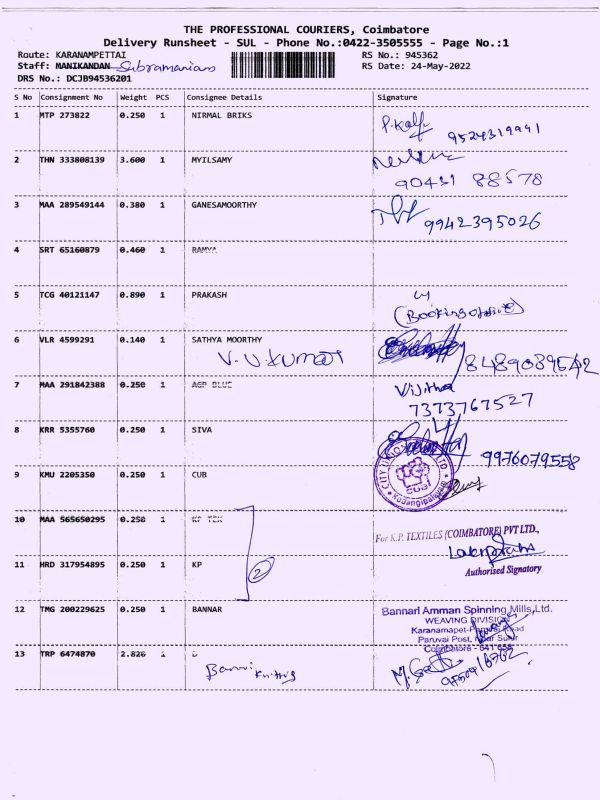 THE PROFESSIONAL COURIERS, Coimbatore
Delivery Runsheet - SUL - Phone No.:0422-3505555 - Page No.:1
Route: KARANAMPETTAI RS No.: 945362
Staff: MANIKANDAN Subramanian RS Date: 24-May-2022
DRS No.: DCJB94536201
S No Consignment No Weight PCS Consignee Details Signature
1 MTP 273822 0.250 1 NIRMAL BRIKS
9524319991
2 THN 333808139 3.600 1 MYILSAMY
90431 88578
3 MAA 289549144 0.380 1 GANESAMOORTHY
9942395026
4 SRT 65160879 0.460 1 RAMYA
5 TCG 40121147 0.890 1 PRAKASH
(Booking office)
6 VLR 4599291 0.140 1 SATHYA MOORTHY
V.U.Kumar 8489089542
7 MAA 291842388 0.250 1 AGP BLUE Vijitha
7373767527
8 KRR 5355760 0.250 1 SIVA
9976079558
9 KMU 2205350 0.250 1 CUB
CUB
Kodangipalayam
10 MAA 565650295 0.250 1 KP TEX
For K.P. TEXTILES (COIMBATORE) PVT LTD.,
11 HRD 317954895 0.250 1 KP
2
Authorised Signatory
12 TMG 200229625 0.250 1 BANNAR Bannari Amman Spinning Mills, Ltd.
WEAVING DIVISION
Karanamapet- Road
Paruvai Post, Near Sulur
Coimbatore - 641 658
13 TRP 6474870 2.820 1